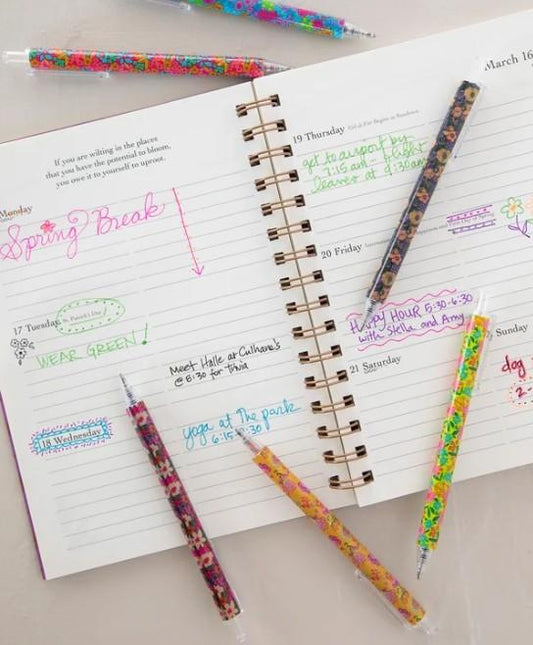 If you are wilting in the places
that you have the potential to bloom,
you owe it to yourself to uproot.
Monday
Spring Break
17 Tuesday St. Patrick's Day
WEAR GREEN!
Meet Halle at Culhane's
@ 8:30 for trivia
18 Wednesday
yoga at The park
6:15
March 16
19 Thursday Eid al-Fitr Begins at Sundown
get to airport by
7:15 am - flight
leaves at 9:30am
20 Friday
First Day of Spring
HAPPY HOUR 5:30-6:30
with Stella and Amy
21 Saturday
Sunday
dog
2-